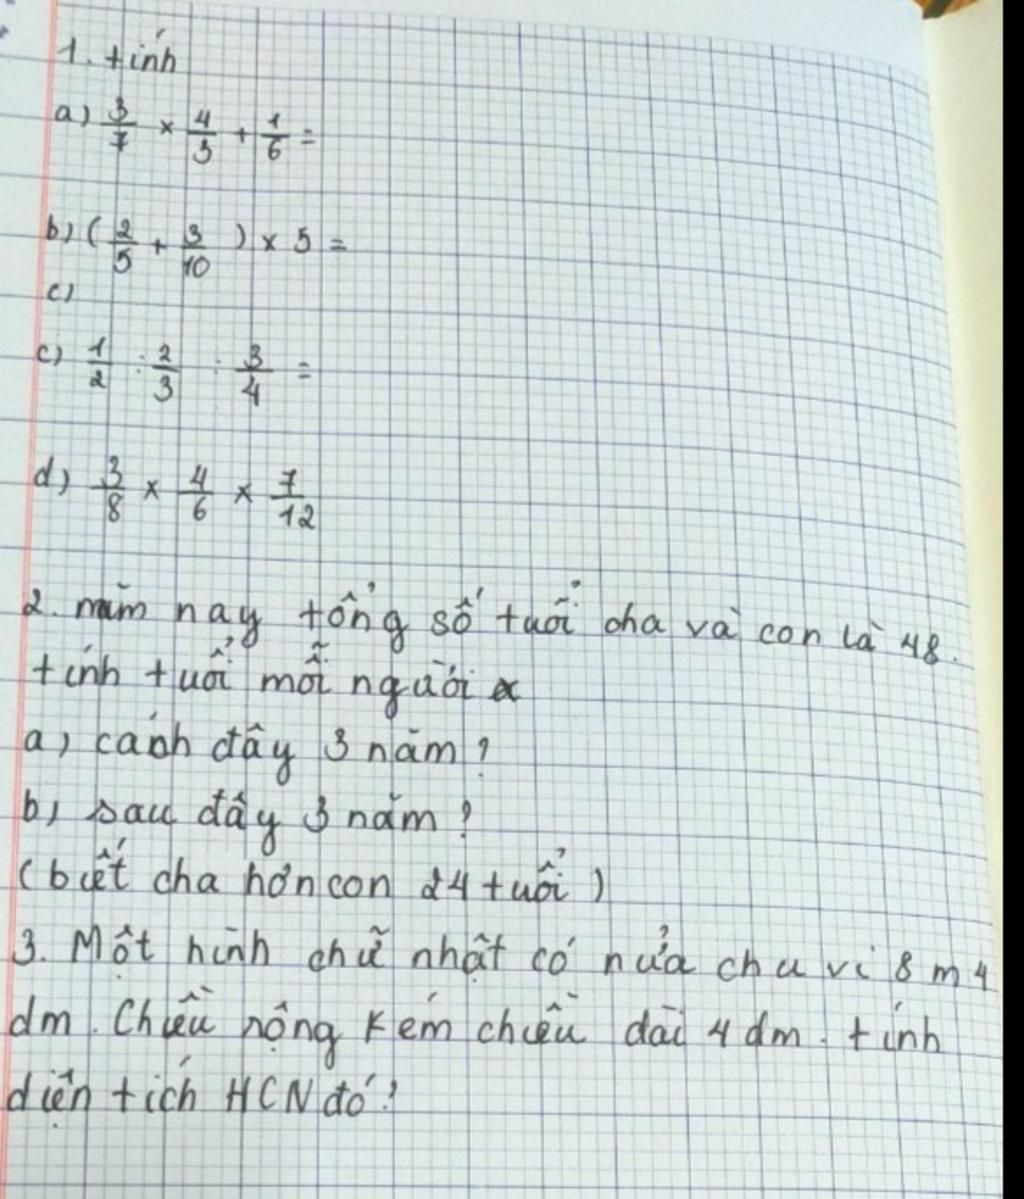 1. tính
a) 3/7 × 4/3 + 1/6 =
b) ( 2/5 + 3/10 ) × 5 =
c)
c) 1/2 : 2/3 : 3/4 =
d) 3/8 × 4/6 × 7/12
2. năm nay tổng số tuổi cha và con là 48.
tính tuổi mỗi người
a) cách đây 3 năm?
b) sau đây 3 năm?
(biết cha hơn con 24 tuổi)
3. Một hình chữ nhật có nửa chu vi 8 m 4
dm. Chiều rộng kém chiều dài 4 dm. tính
diện tích HCN đó?